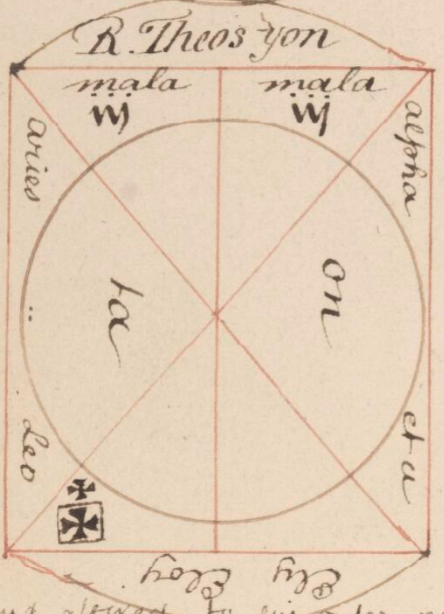 R. Theos yon
mala mala
aries
alpha
ta
on
Leo
et ω
Eloy Ely